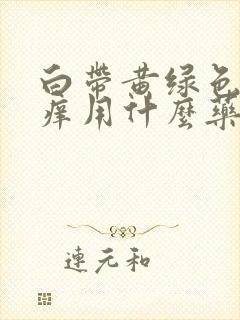 白帶黄绿色
痒用什麼藥
連元和